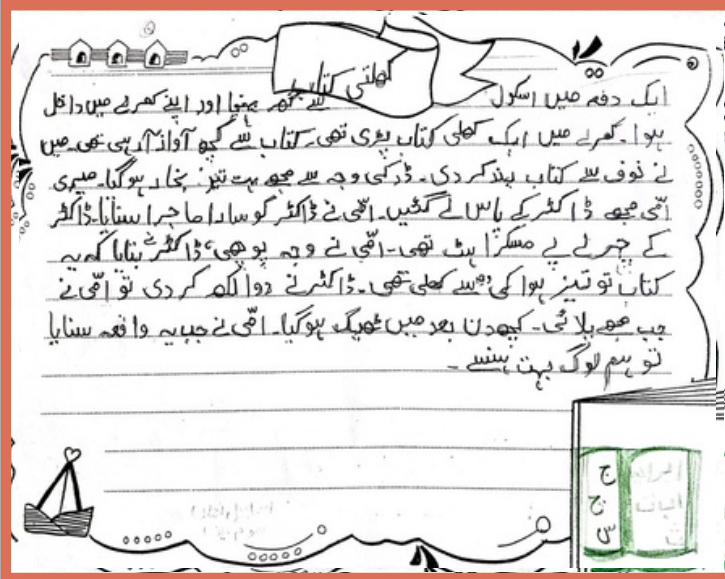 کھلتی کتاب
ایک دفعہ میں اسکول سے گھر پہنچا اور اپنے کمرے میں داخل
ہوا۔ کمرے میں ایک کھلی کتاب پڑی تھی۔ کتاب سے کچھ آواز آرہی تھی۔ میں
نے خوف سے کتاب بند کر دی۔ ڈر کی وجہ سے مجھے بہت تیز بخار ہوگیا۔ میری
امّی مجھے ڈاکٹر کے پاس لے گئیں۔ امّی نے ڈاکٹر کو سارا ماجرا سنایا۔ ڈاکٹر
کے چہرے پے مسکراہٹ تھی۔ امّی نے وجہ پوچھی، ڈاکٹر نے بتایا کہ یہ
کتاب تو تیز ہوا کی وجہ سے کھلی تھی۔ ڈاکٹر نے دوا لکھ کر دی تو امّی نے
جب مجھے پلائی۔ کچھ دن بعد میں ٹھیک ہوگیا۔ امّی نے جب یہ واقعہ سنایا
تو ہم لوگ بہت ہنسے۔
ج
چ
س